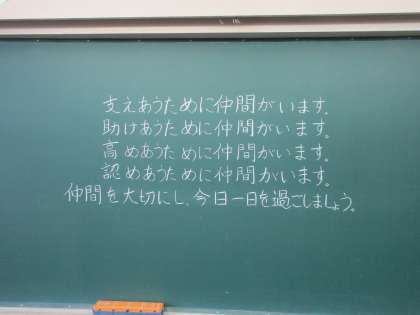 支えあうために仲間がいます。
助けあうために仲間がいます。
高めあうために仲間がいます。
認めあうために仲間がいます。
仲間を大切にし、今日一日を過ごしましょう。